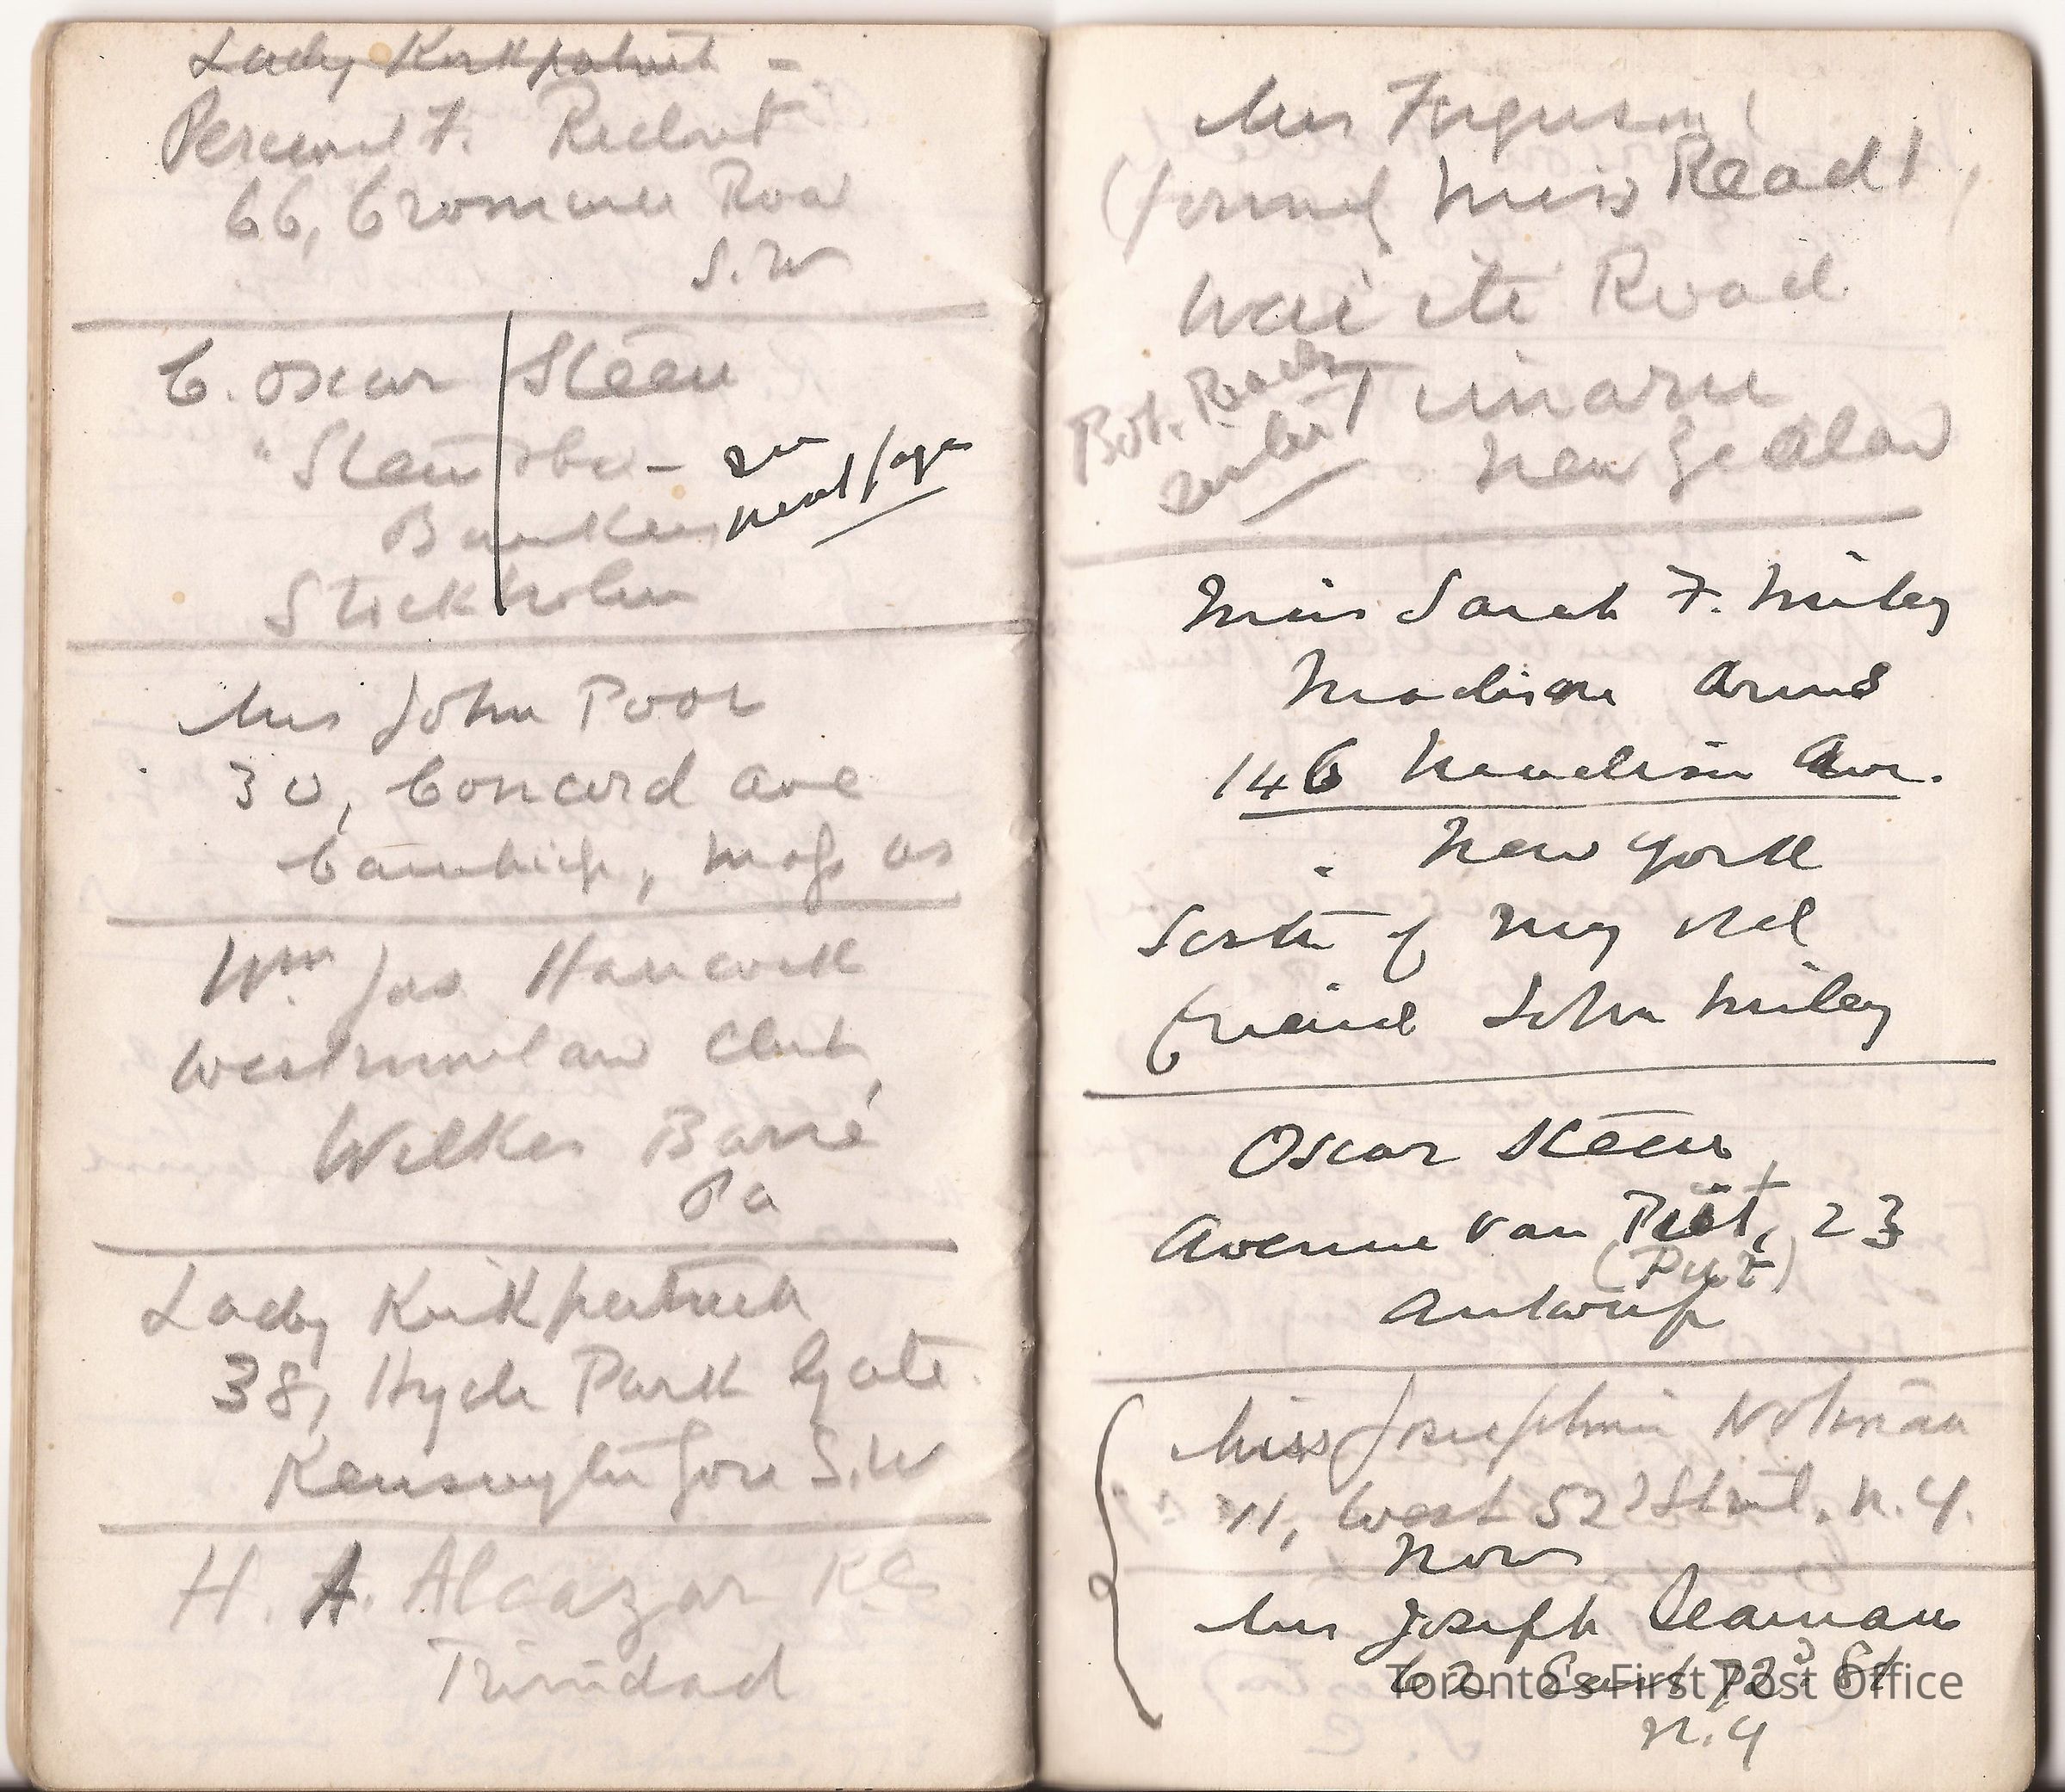 Lady Kirkpatrick -
Percival F. Ridout
66, Cromwell Road
S.W
C. Oscar Steen
Banken
see
next page
Stockholm
Mrs John Poor
30, Concord Ave
Cambridge, Mass US
Wm Jas Hancock
Westmoreland Club,
Wilkes Barré
Pa
Lady Kirkpatrick
38, Hyde Park Gate.
Kensington Gore S.W
H. A. Alcazar KC
Trinidad
Mrs Ferguson
(formerly Miss Read)
Wai iti Road
Timaru
New Zealand
Miss Sarah F. Miley
Madison Arms
146 Madison Ave.
New York
Sister of my old
friend John Miley
Oscar Steen
Avenue van Put, 23
(Put)
Antwerp
Miss Josephine Notman
11, West 52d Street. N.Y.
now
Mrs Joseph Seaman
62 East 72d St
N.Y
Toronto's First Post Office